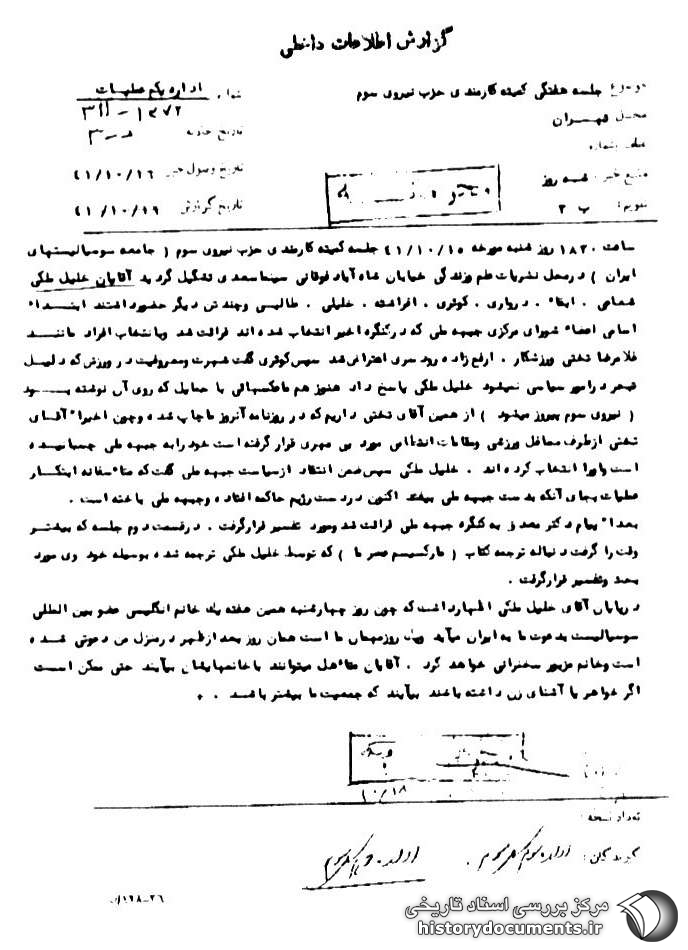 گزارش اطلاعات داخلی
موضوع: جلسه هفتگی کمیته کارمندی حزب نیروی سوم
محل: تهران
منبع خبر: شنبه روز
تقویم: ب ۳
شماره: اداره یکم عملیات
۳۱۱ - ۱۲۷۲
تاریخ حادثه
تاریخ وصول خبر ۴۱/۱۰/۱۶
تاریخ گزارش ۴۱/۱۰/۱۶
ساعت ۱۸۳۰ روز شنبه مورخه ۴۱/۱۰/۱۵ جلسه کمیته کارمندی حزب نیروی سوم ( جامعه سوسیالیستهای
ایران ) در محل نشریات علم وزندگی خیابان شاه آباد فوقانی سینما سعدی تشکیل گردید آقایان خلیل ملکی
شعاعی . درباری . کوثری . افراشته . خلیلی . طالبی وچند تن دیگر حضور داشتند ابتداء
اسامی اعضاء شورای مرکزی جبهه ملی که در کنگره اخیر انتخاب شده اند قرائت شد وبانتخاب افراد ماننـد
غلامرضا تختی ورزشکار . ارفع زاده رودسری اعتراض شد سپس کوثری گفت شهرت ومعروفیت در ورزش که دلیل
تبحر درامور سیاسی نمیشود خلیل ملکی پاسخ داد هنوز هم ما عکسهائی با حمایل که روی آن نوشته بود
( نیروی سوم پیروز میشود ) از همین آقای تختی داریم که در روزنامه آنروز ما چاپ شده وچون اخیراً آقـای
تختی از طرف محافل ورزشی ومقامات انتظامی مورد بی مهری قرار گرفته است خود را به جبهه ملی چسبانیـده
است واورا انتخاب کرده اند . خلیل ملکی سپس ضمن انتقاد از سیاست جبهه ملی گفت که متأسفانه ابتکـار
عملیات بجای آنکه بدست جبهه ملی بیفتد اکنون در دست رژیم حاکمه افتاده وجبهه ملی باخته است .
بعداً پیام دکتر مصدق به کنگره جبهه ملی قرائت شد ومورد تفسیر قرار گرفت . در قسمت دوم جلسه که بیشتـر
وقت را گرفت دنباله ترجمه کتاب ( مارکسیسم عصر ما ) که توسط خلیل ملکی ترجمه شده بوسیله خود وی مورد
بحث وتفسیر قرار گرفت .
در پایان آقای خلیل ملکی اظهار داشت که چون روز چهارشنبه همین هفته یک خانم انگلیسی عضو بین المللی
سوسیالیست بدعوت ما به ایران میآید ویک روز مهمان ما است همان روز بعد از ظهر در منزل من دعوتی شده
است وخانم مزبور سخنرانی خواهد کرد . آقایان متأهل میتوانند با خانمهایشان بیآیند حتی ممکن است
اگر خواهر یا آشنای زن داشته باشند بیآیند که جمعیت ما بیشتر باشد .
۱۰/۱۸
تعداد نسخه :
گیرندگان : اداره سوم
۲۶-۱۲۸
مرکز بررسی اسناد تاریخی
historydocuments.ir